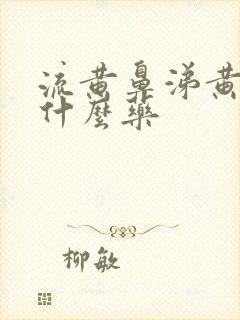 流黄鼻涕黄
什麼藥
柳敏